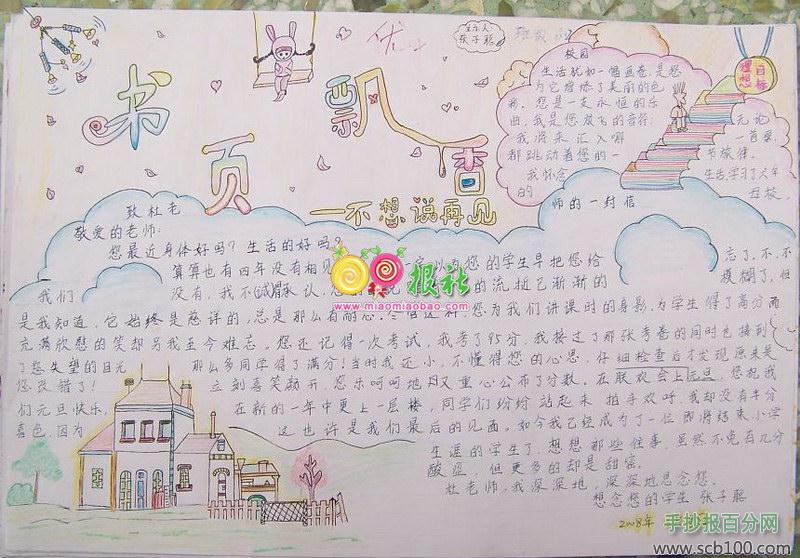 优
主办人:
张子聪
书页飘香
——不想说再见
理想
目标
校园
生活犹如一幅画卷,是您
为它增添了美丽的色
彩。您是一支永恒的乐
曲,我是您放飞的音符。
无论
我将来汇入哪
一首要,
都跳动着您的一
节旋律。
我怀念
生活学习了六年
的
母校。
致杜老
师的一封信
敬爱的老师:
您最近身体好吗?生活的好吗?
算算也有四年没有相见
以为您的学生早把您给
忘了,不,不
我们
没有,我不
承认,
的流逝已渐渐的
模糊了,但
是我知道,它始终是慈详的,总是那么有耐心。
您为我们讲课时的身影,为学生得了高分而
充满欣慰的笑却另我至今难忘,您还记得一次考试,我考了95分,我接过了那张考卷的同时也接到
了您失望的目光
那么多同学得了满分!当时我还小,不懂得您的心思,仔细检查后才发现原来是
您改错了!
立刻喜笑颜开,您乐呵呵地又重心公布了分数。在联欢会上元旦,您祝我
们元旦快乐,
在新的一年中更上一层楼,同学们纷纷站起来拍手欢呼,我却没有半分
喜色,因为
这也许是我们最后的见面。如今我已经成为了一位即将结束小学
生涯的学生了,想想那些往事,虽然不免有几分
酸涩,但更多的却是甜蜜。
杜老师,我深深地,深深地思念您。
想念您的学生 张子聪
2008年
报社
www.miaomiaobao.com
手抄报百分网
www.scb100.com